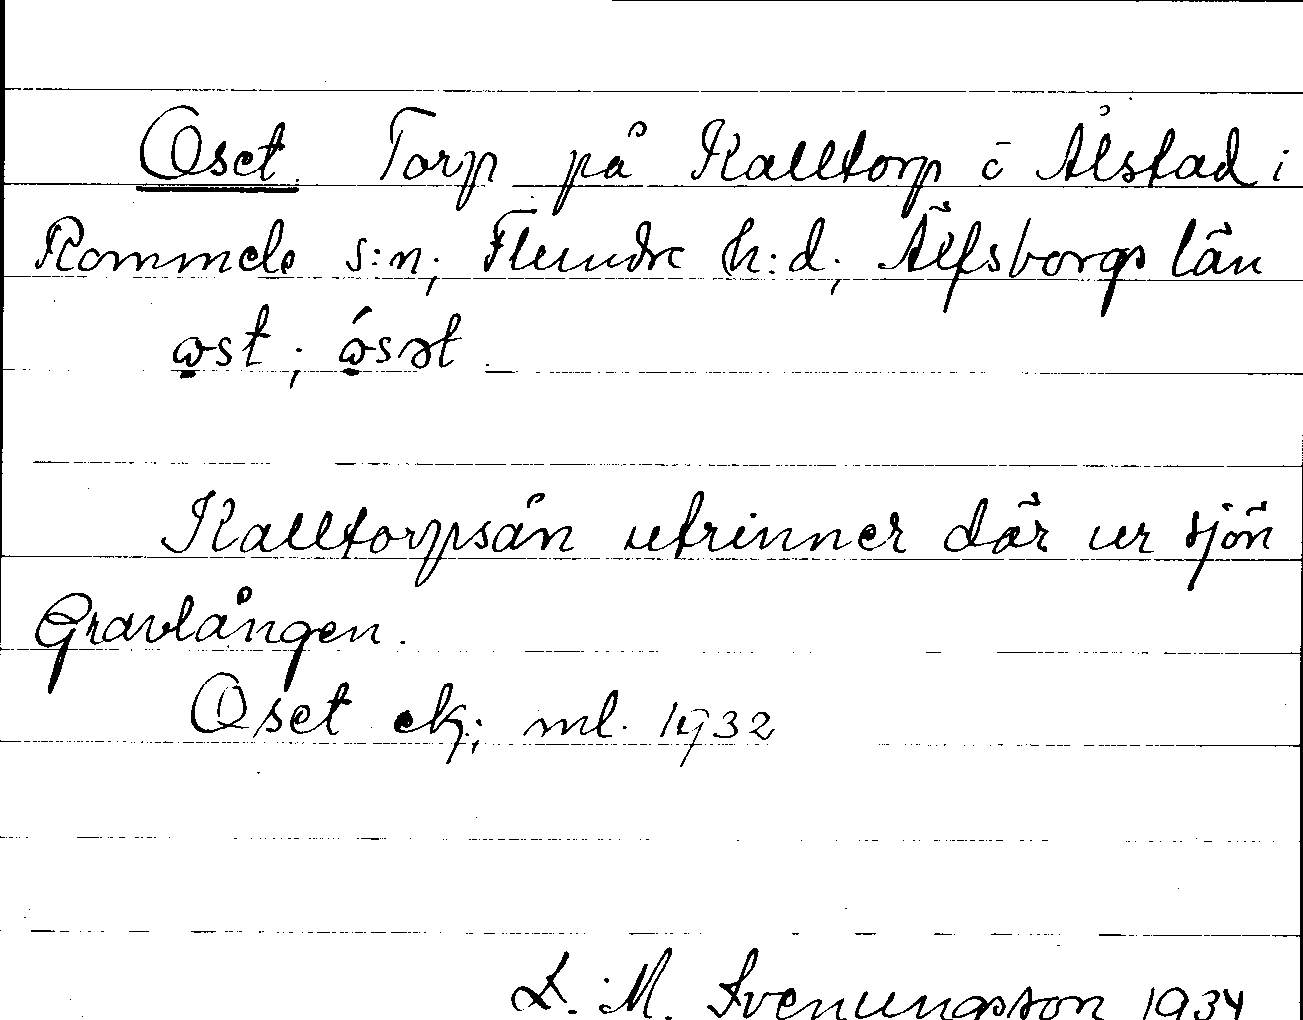 Oset. Torp på Kalltorp i Ålstad i
Rommele s:n; Flundre h:d; Älfsborgs län
ɷst; ɷ́sət
Kalltorpsån utrinner där ur sjön
Gravlången.
Oset ek; ml. 1932
D. M. Svenungsson 1934